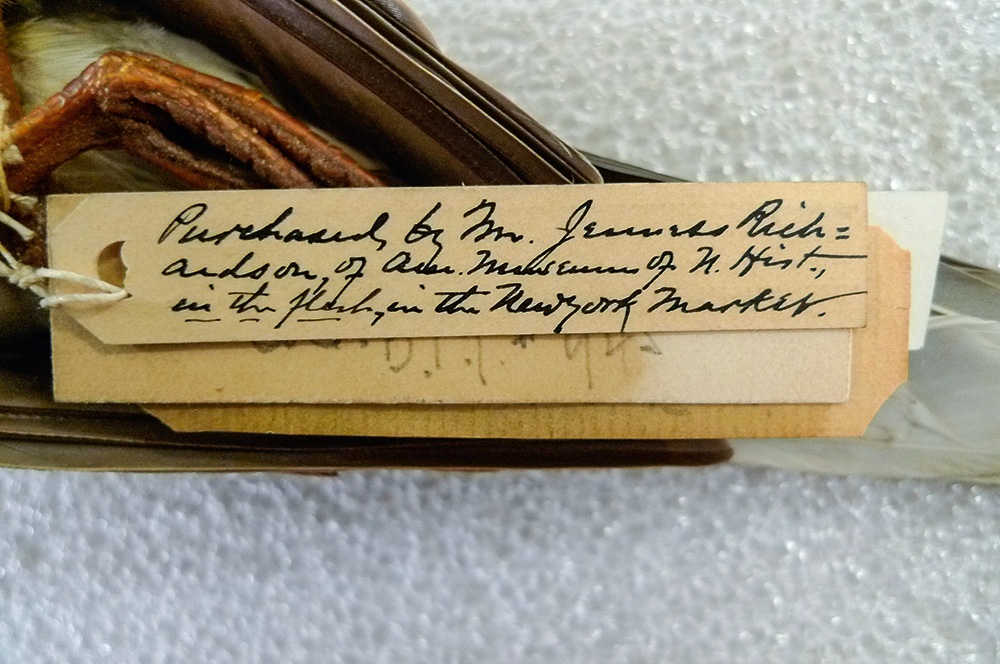 Purchased, by Mr. Jenness Rich=
ardson, of Am. Museum of N. Hist.,
in the flesh, in the New York Market.